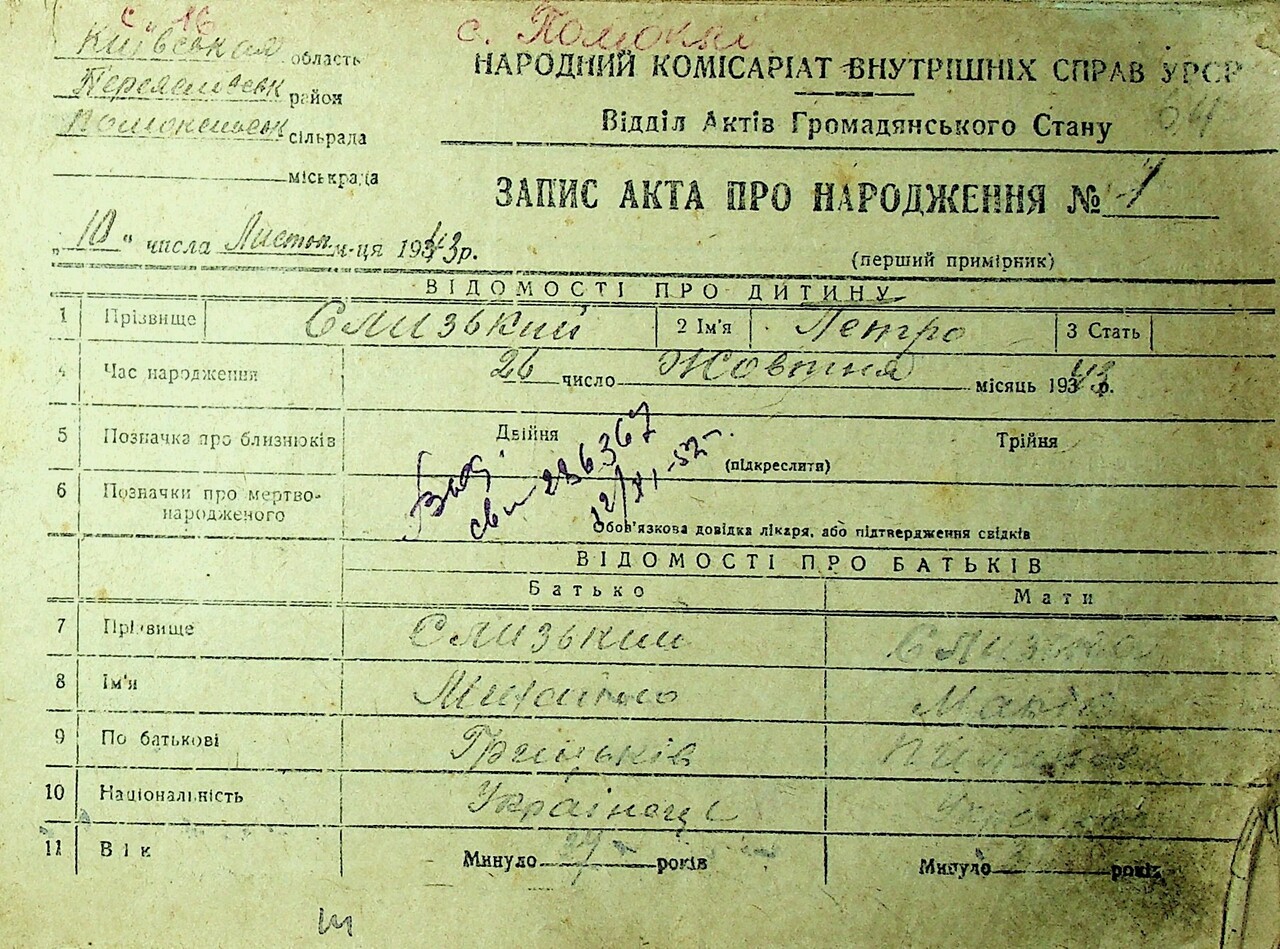 с. Помоклі
Київська область
НАРОДНИЙ КОМІСАРІАТ ВНУТРІШНІХ СПРАВ УРСР
Переяславськ район
64
Відділ Актів Громадянського Стану
Помокельськ сільрада
міськрада
ЗАПИС АКТА ПРО НАРОДЖЕННЯ № 1
„10" числа Листоп м-ця 1943р.
(перший примірник)
ВІДОМОСТІ ПРО ДИТИНУ
1 Прізвище Слизький 2 Ім'я Петро 3 Стать
4 Час народження 26 число Жовтня місяць 1943 р.
5 Позначка про близнюків Двійня Трійня
(підкреслити)
6 Позначки про мертво-
народженого
Обов'язкова довідка лікаря, або підтвердження свідків
Выд.
св 286367
12/XI-52г.
ВІДОМОСТІ ПРО БАТЬКІВ
Батько Мати
7 Прізвище Слизький Слизька
8 Ім'я Михайло Марія
9 По батькові Грицьків
10 Національність Українец
11 Вік Минуло років Минуло років